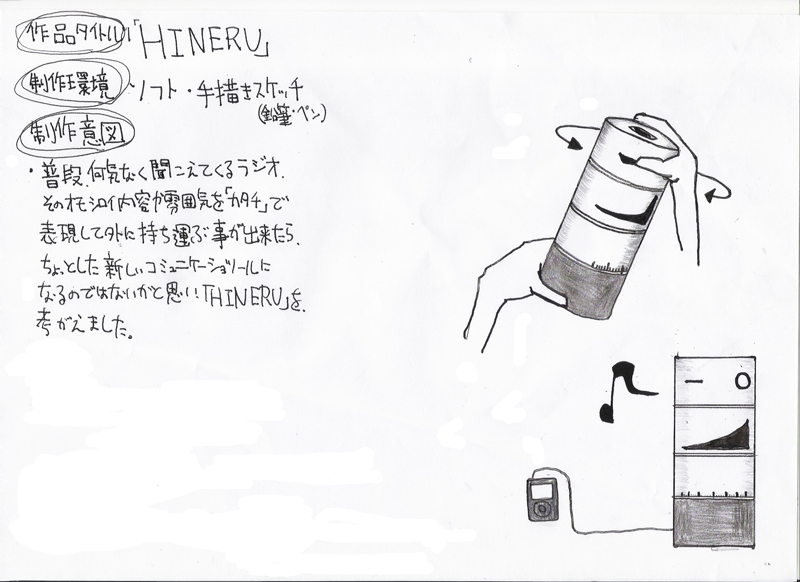 作品タイトル「HINERU」
制作環境 ソフト・手描きスケッチ
(鉛筆・ペン)
制作意図
・普段、何気なく聞こえてくるラジオ.
そのオモシロイ内容や雰囲気を「カタチ」で
表現して外に持ち運ぶ事が出来たら、
ちょっとした新しいコミュニケーションツールに
なるのではないかと思い「HINERU」を、
考がえました。